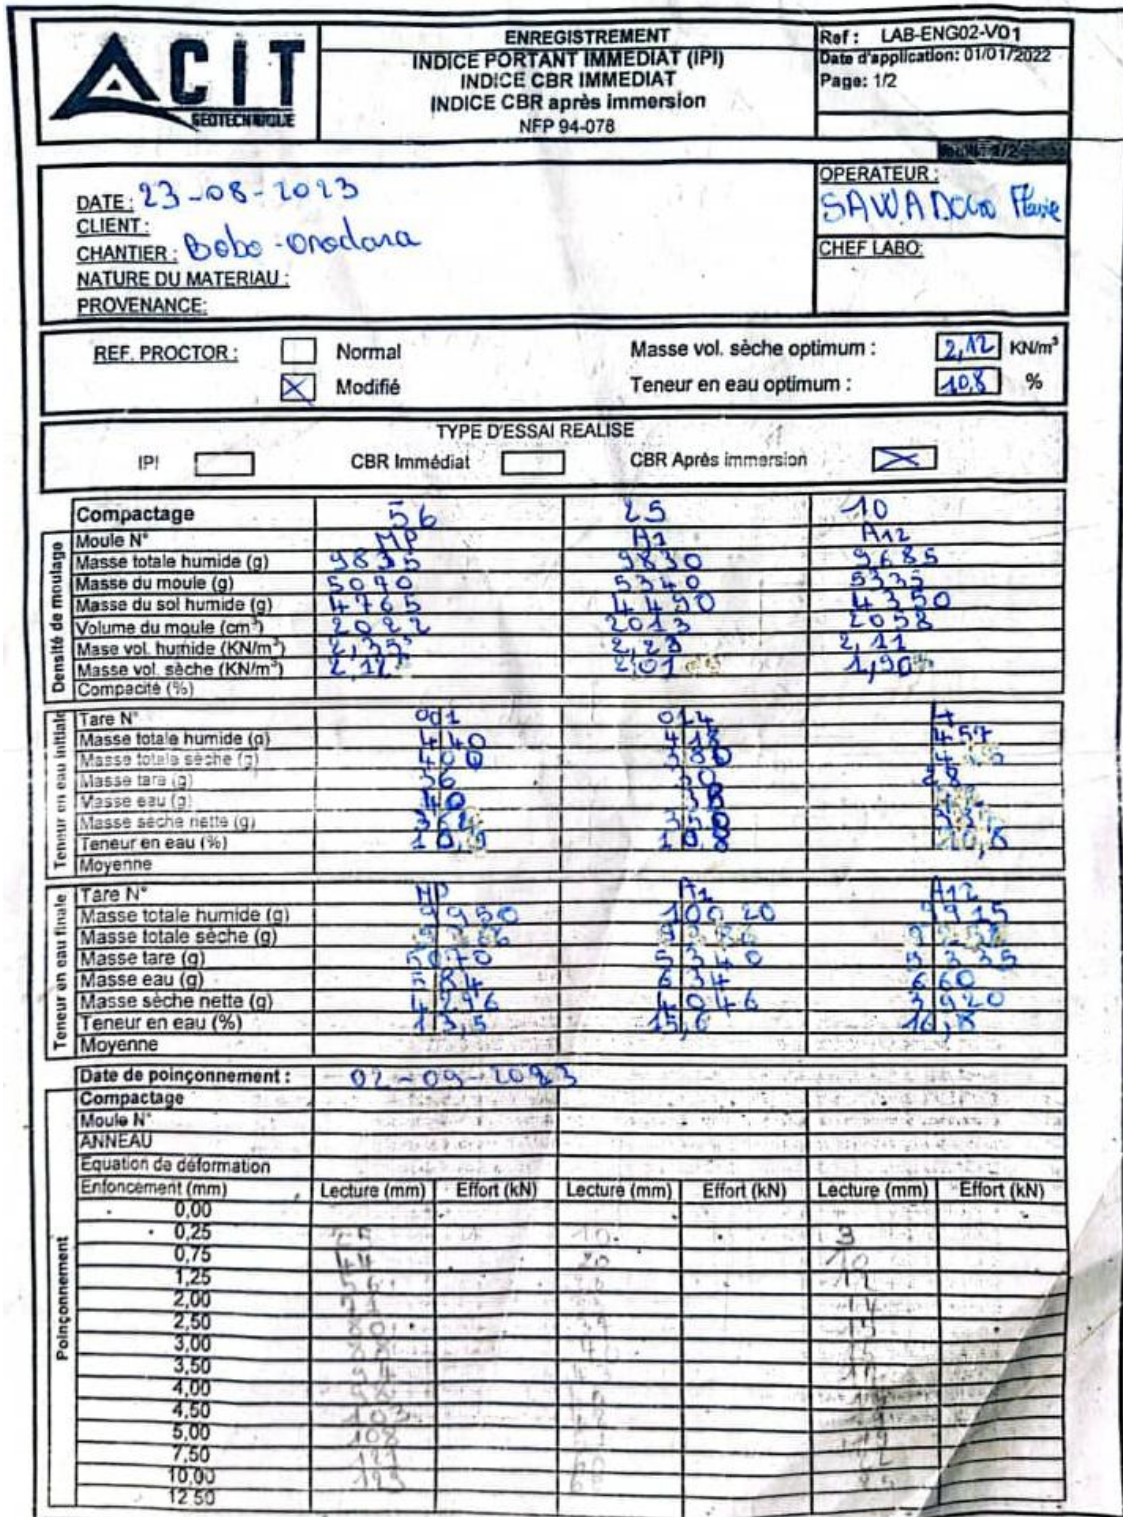 ACIT
GEOTECHNIQUE
ENREGISTREMENT
INDICE PORTANT IMMEDIAT (IPI)
INDICE CBR IMMEDIAT
INDICE CBR après immersion
NFP 94-078
Ref : LAB-ENG02-V01
Date d'application: 01/01/2022
Page: 1/2
DATE : 23-08-2023
CLIENT :
CHANTIER : Bobo-Orodara
NATURE DU MATERIAU :
PROVENANCE:
OPERATEUR :
SAWADOGO Flavie
CHEF LABO:
REF. PROCTOR : Normal Masse vol. sèche optimum : 2,12 KN/m³
Modifié Teneur en eau optimum : 10,8 %
TYPE D'ESSAI REALISE
IPI CBR Immédiat CBR Après immersion
Densité de moulage
Compactage 56 25 10
Moule N° MP A1 A12
Masse totale humide (g) 9835 9830 9685
Masse du moule (g) 5070 5340 5335
Masse du sol humide (g) 4765 4490 4350
Volume du moule (cm³) 2022 2013 2058
Mase vol. humide (KN/m³) 2,35 2,23 2,11
Masse vol. sèche (KN/m³) 2,12 2,01 1,90
Compacité (%)
Teneur en eau initiale
Tare N° 001 014 4
Masse totale humide (g) 440 418 457
Masse totale sèche (g) 400 380
Masse tare (g) 36 30 28
Masse eau (g) 40 38
Masse sèche nette (g) 364 350
Teneur en eau (%) 10,9 10,8 10,8
Moyenne
Teneur en eau finale
Tare N° MP A1 A12
Masse totale humide (g) 9950 10020 9915
Masse totale sèche (g)
Masse tare (g) 5070 5340 5335
Masse eau (g) 584 634 660
Masse sèche nette (g) 4296 4046 3920
Teneur en eau (%) 13,5 15,6 16,8
Moyenne
Date de poinçonnement : 02-09-2023
Poinçonnement
Compactage
Moule N°
ANNEAU
Equation de déformation
Enfoncement (mm) Lecture (mm) Effort (kN) Lecture (mm) Effort (kN) Lecture (mm) Effort (kN)
0,00
0,25 25 10 3
0,75 44 20 10
1,25 56 12
2,00 71 14
2,50 80 15
3,00 88
3,50 94
4,00 98
4,50 103
5,00 108
7,50 60 22
10,00 25
12 50